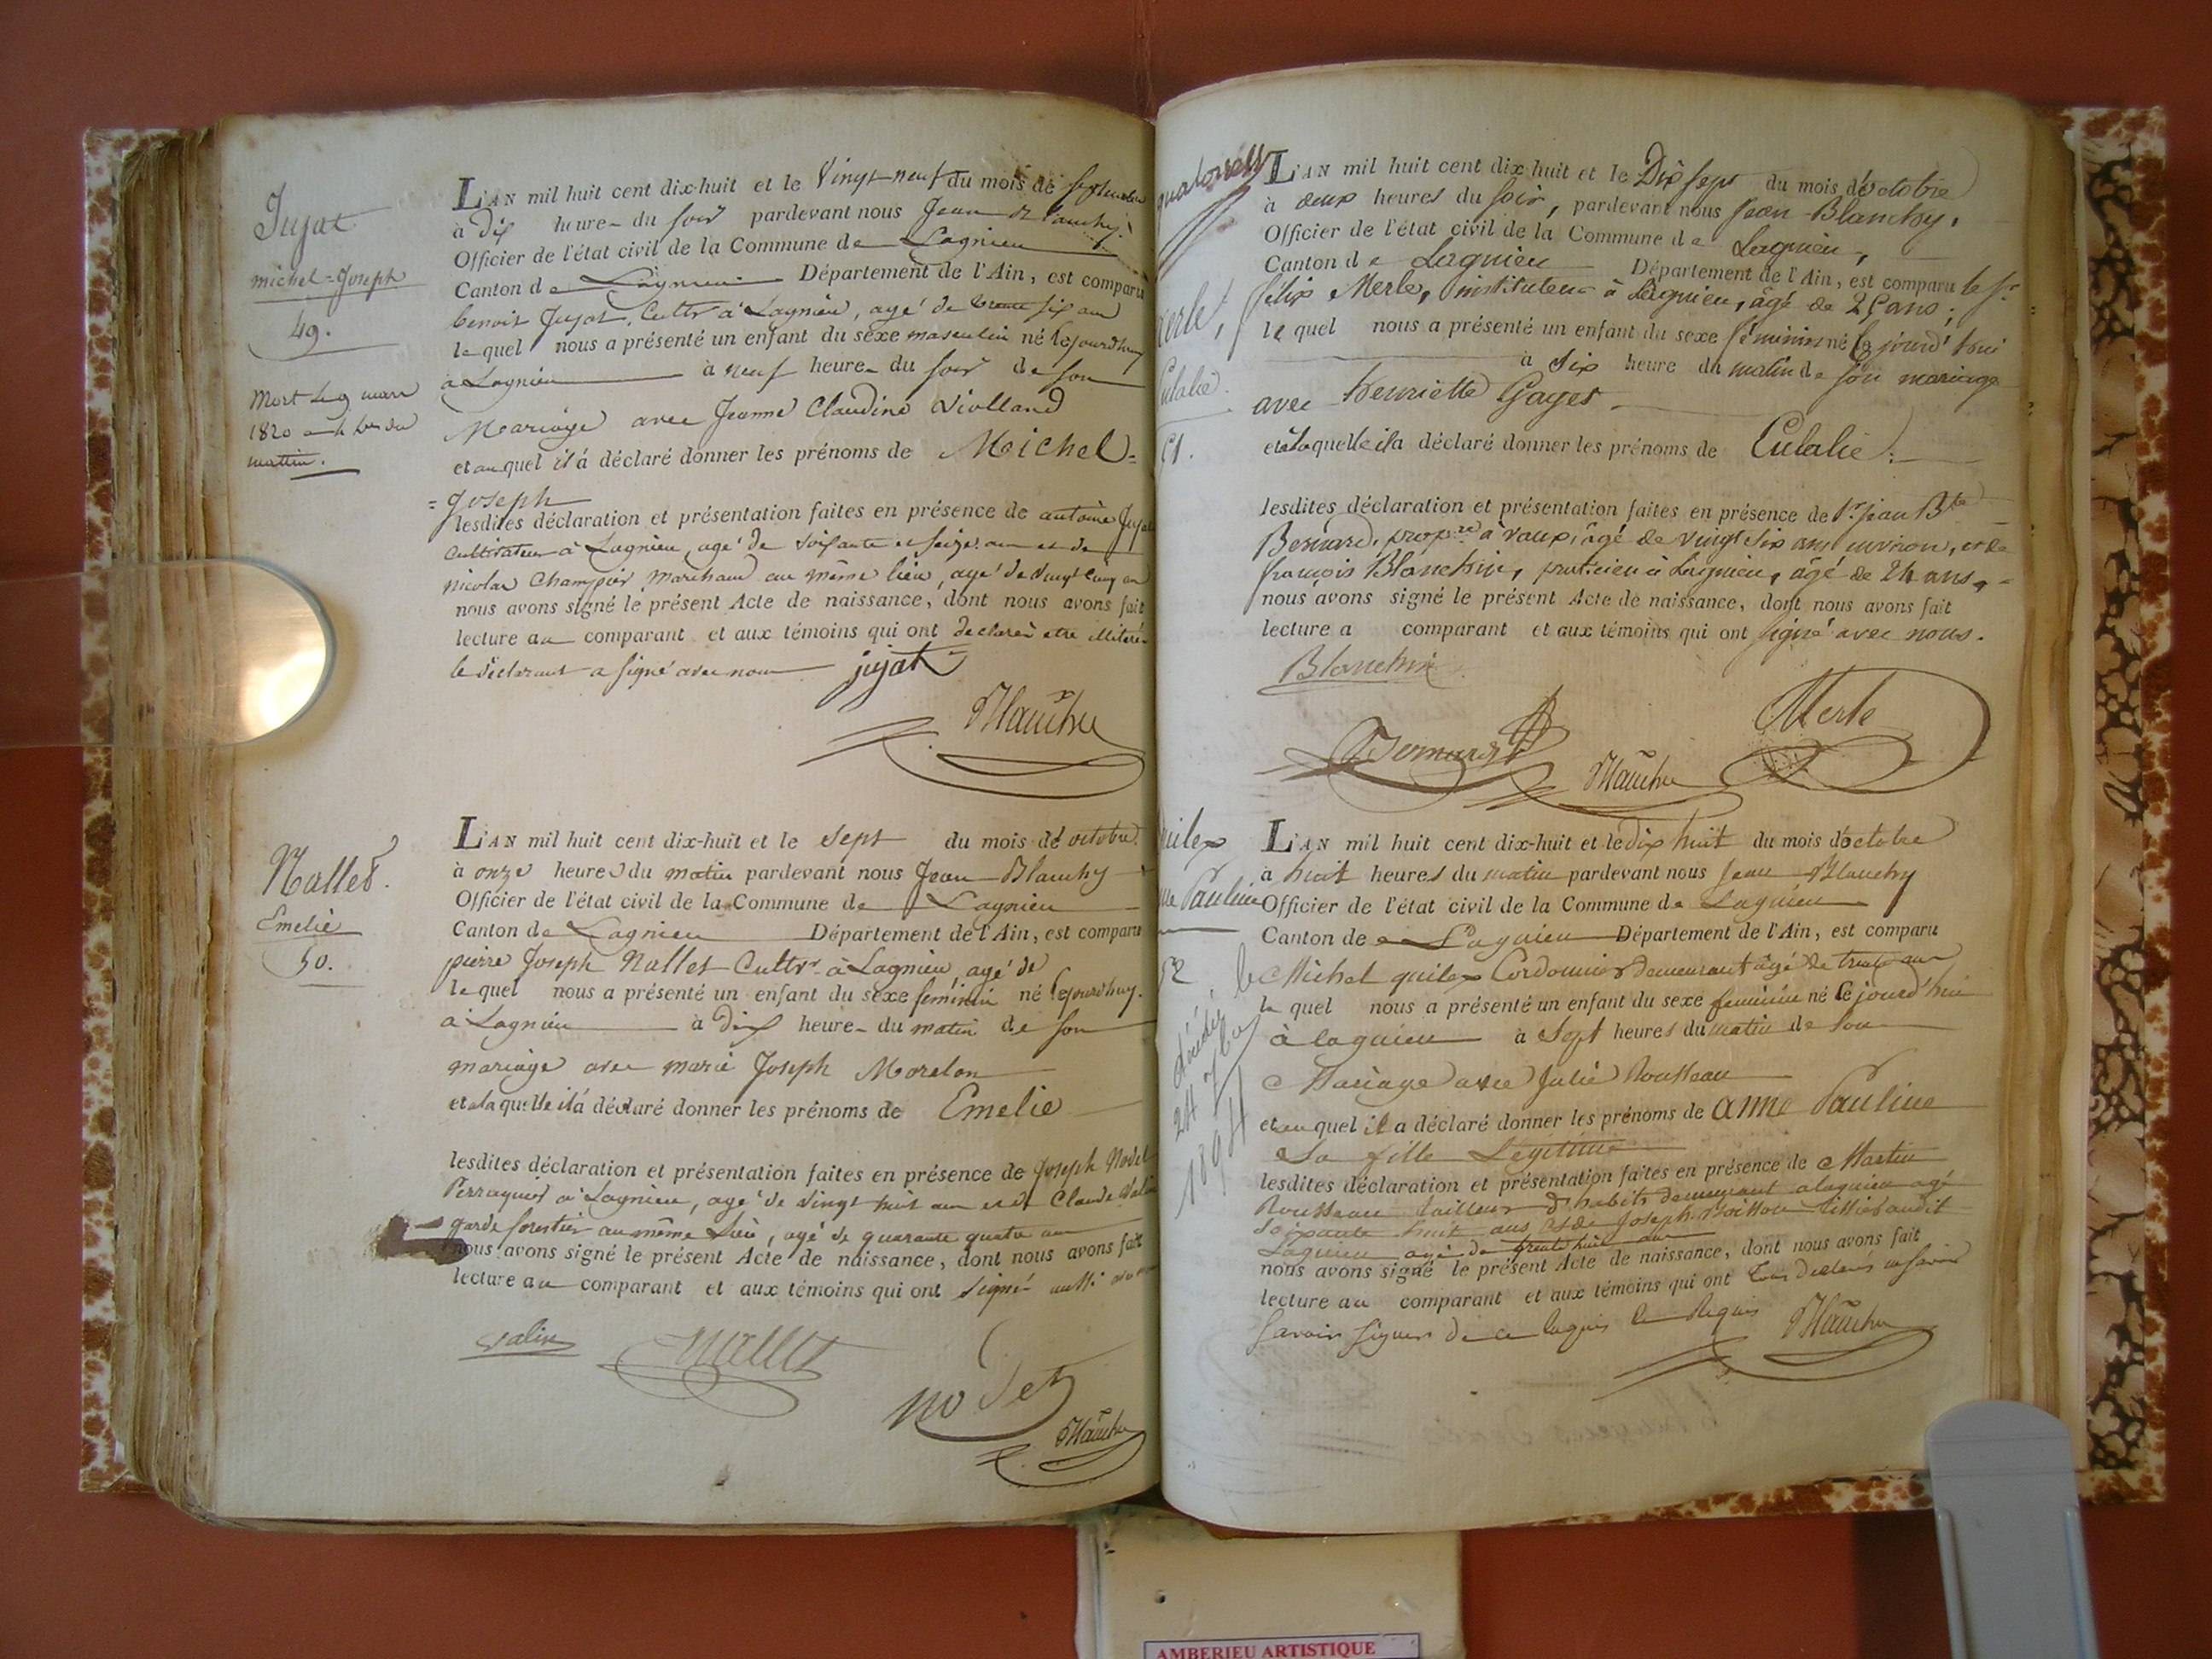 Jujat
michel-Joseph
49.
Mort le 9 mars
1820 à h du
matin.
L'AN mil huit cent dix-huit et le Vingt-neuf du mois de septembre
à dix heure du soir pardevant nous Jean Blanchy
Officier de l'état civil de la Commune de Lagnieu
Canton de Lagnieu Département de l'Ain, est comparu
benoit Jujat, Cultr à Lagnieu, agé de trente six ans
lequel nous a présenté un enfant du sexe masculin né cejourdhuy
à Lagnieu à neuf heure du soir de son
Mariage avec Jeanne Claudine Violland
et auquel il a déclaré donner les prénoms de Michel=
=Joseph
lesdites déclaration et présentation faites en présence de antoine Jujat
Cultivateur à Lagnieu, agé de soixante et seize ans et de
nicolas Champier marchand au même lieu, agé de vingt cinq ans
nous avons signé le présent Acte de naissance, dont nous avons fait
lecture au comparant et aux témoins qui ont declarés etre illiteré
le déclarant a signé avec nous jujat
Blanchy
Nallet.
Emelie
50.
L'AN mil huit cent dix-huit et le sept du mois de octobre
à onze heures du matin pardevant nous Jean Blanchy
Officier de l'état civil de la Commune de Lagnieu
Canton de Lagnieu Département de l'Ain, est comparu
pierre Joseph Nallet Cultr à Lagnieu, agé de
lequel nous a présenté un enfant du sexe feminin né cejourdhuy.
à Lagnieu à dix heure du matin de son
mariage avec marie Joseph Morelon
et à laquelle il a déclaré donner les prénoms de Emelie
lesdites déclaration et présentation faites en présence de Joseph Nodet
Perruquier à Lagnieu, agé de vingt huit ans et de Claude Valin
garde forestier au même Lieu, agé de quarante quatre ans
nous avons signé le présent Acte de naissance, dont nous avons fait
lecture au comparant et aux témoins qui ont signé aussi avec nous
valin Nallet
nodet
Blanchy
quatorze
Merle,
Eulalie.
51.
L'AN mil huit cent dix-huit et le Dix sept du mois d'octobre
à deux heures du soir, pardevant nous Jean Blanchy,
Officier de l'état civil de la Commune de Lagnieu,
Canton de Lagnieu Département de l'Ain, est comparu le Sr
félix Merle, instituteur à Lagnieu, âgé de 25 ans;
lequel nous a présenté un enfant du sexe féminin né cejourd'hui
à six heure du matin de son mariage
avec henriette Gayet
et à laquelle il a déclaré donner les prénoms de Eulalie.
lesdites déclaration et présentation faites en présence de Sr jean Bte
Bernard, propre à vaux, âgé de vingt six ans environ, et de
françois Blanchin, praticien à Lagnieu, âgé de 24 ans,
nous avons signé le présent Acte de naissance, dont nous avons fait
lecture a comparant et aux témoins qui ont signé avec nous.
Blanchin
Merle
Bernard
Blanchy
quilex
Pauline
52
décédée le
24 7bre
1894
L'AN mil huit cent dix-huit et le dix huit du mois d'octobre
à huit heures du matin pardevant nous Jean Blanchy
Officier de l'état civil de la Commune de Lagnieu
Canton de Lagnieu Département de l'Ain, est comparu
Michel quilex Cordonnier demeurant âgé de trente ans
lequel nous a présenté un enfant du sexe feminin né cejourd'hui
à lagnieu à sept heures du matin de son
Mariage avec Julie Rousseau
et auquel il a déclaré donner les prénoms de anne Pauline
Sa fille Legitime
lesdites déclaration et présentation faites en présence de Martin
Rousseau tailleur d'habits demeurant a lagnieu agé
soixante huit ans et de Joseph Boisson tissier audit
Lagnieu agé de trente huit ans
nous avons signé le présent Acte de naissance, dont nous avons fait
lecture au comparant et aux témoins qui ont tous declarés ne savoir
savoir signer de ce enquis et Requis Blanchy
AMBERIEU ARTISTIQUE